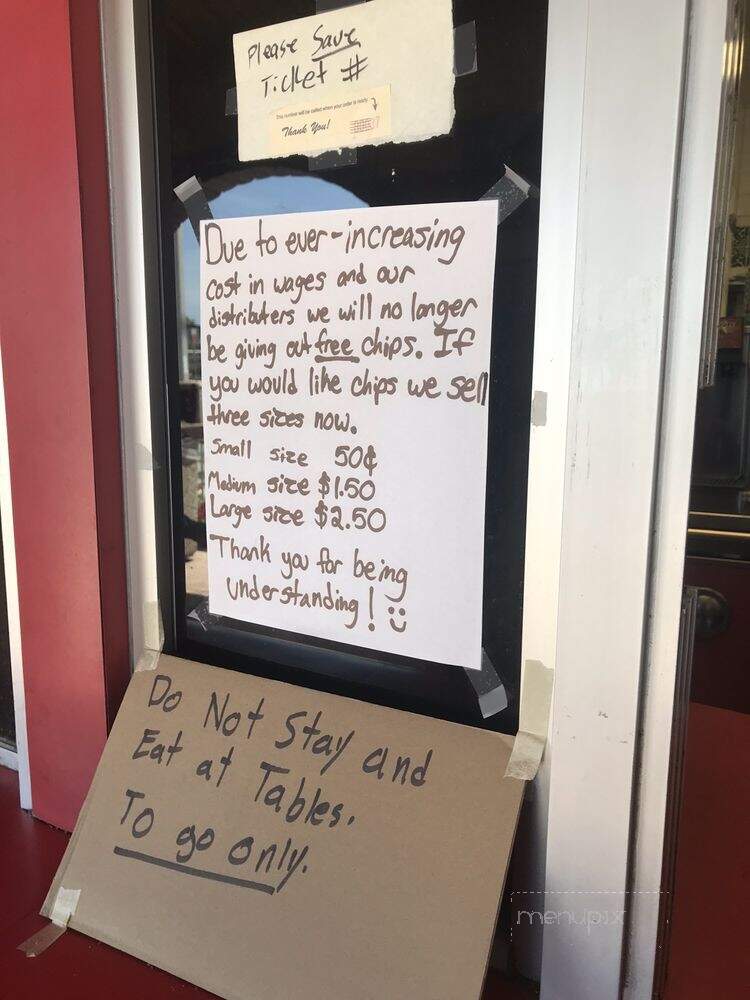 Please Save
Ticket #
This number will be called when your order is ready
Thank You!
Due to ever-increasing
cost in wages and our
distributers we will no longer
be giving out free chips. If
you would like chips we sell
three sizes now.
Small size 50¢
Medium size $1.50
Large size $2.50
Thank you for being
understanding! :)
Do Not Stay and
Eat at Tables.
To go only.
menupix